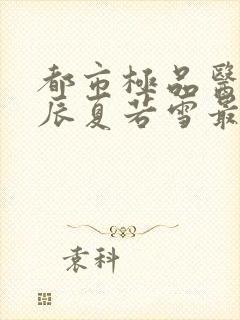 都市極品醫
辰夏若雪最
袁科